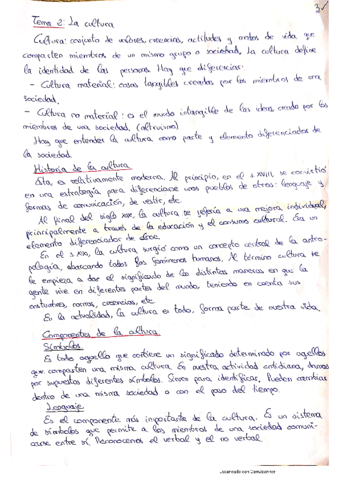 3
Tema 2: La cultura
Cultura: conjunto de valores, creencias, actitudes y modos de vida que
comparten miembros de un mismo grupo o sociedad. La cultura define
la identidad de las personas. Hay que diferenciar:
- Cultura material: cosas tangibles creadas por los miembros de una
sociedad.
- Cultura no material: es el mundo intangible de las ideas creada por los
miembros de una sociedad. (altruismo)
Hay que entender la cultura como parte y elemento diferenciador de
la sociedad.
Historia de la cultura
Esta, es relativamente moderna. Al principio, en el s. XVIII se convirtió
en una estrategia para diferenciarse unos pueblos de otros: lenguaje y
formas de comunicación, de vestir, etc.
Al final del siglo XIX, la cultura se refería a una mejora individual,
principalmente a través de la educación y el consumo cultural. Era un
elemento diferenciador de clase.
En el s. XX, la cultura surgió como un concepto central de la antro-
pología, abarcando todos los fenómenos humanos. Al término cultura se
le empieza a dar el significado de las distintas maneras en que la
gente vive en diferentes partes del mundo teniendo en cuenta sus
costumbres, normas, creencias, etc.
En la actualidad, la cultura es todo, forma parte de nuestra vida.
Componentes de la cultura
Símbolos
Es todo aquello que contiene un significado determinado por aquellos
que comparten una misma cultura. En nuestra actividad cotidiana, damos
por supuestos diferentes símbolos. Sirven para identificar. Pueden cambiar
dentro de una misma sociedad o con el paso del tiempo.
Lenguaje
Es el componente más importante de la cultura. Es un sistema
de símbolos que permite a los miembros de una sociedad comuni-
carse entre sí. Reconocemos el verbal y el no verbal.